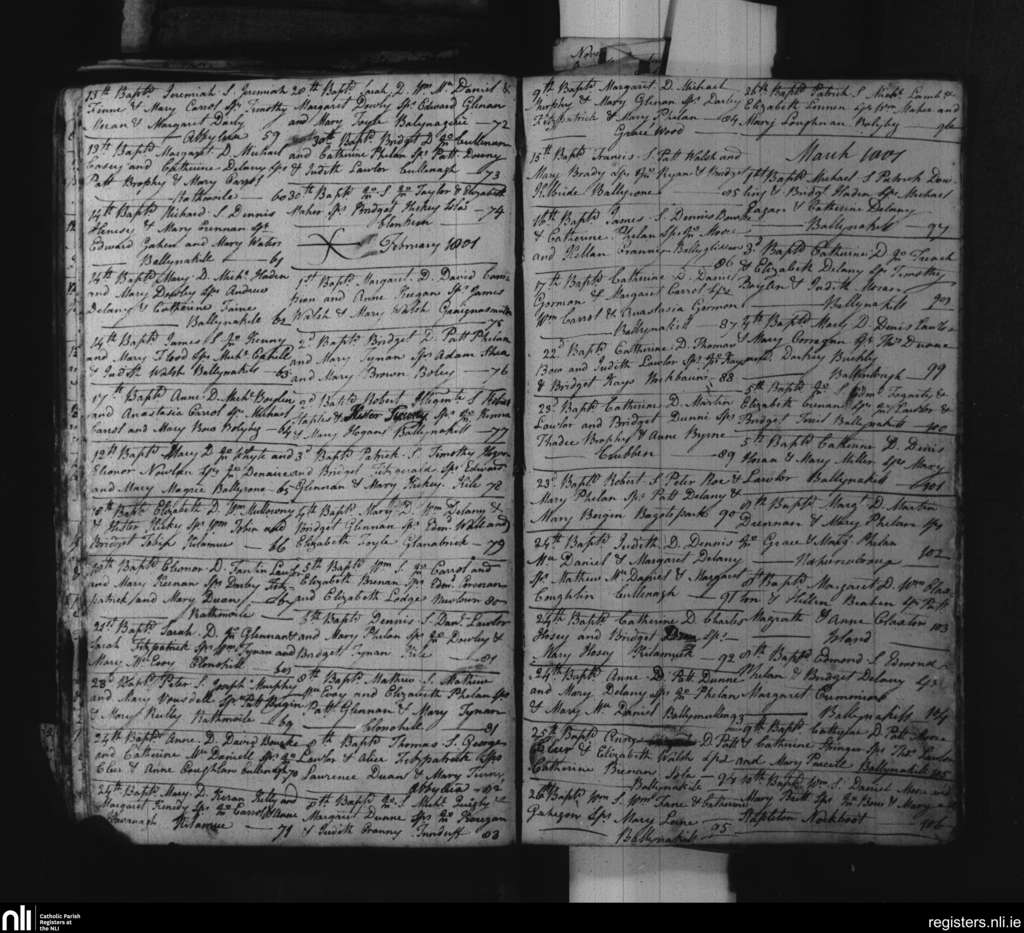 13th Baptd Jeremiah S. Jeremiah
Finne & Mary Carrol Sps Timothy
Horan & Margaret Darby
Abbyleix 59
13th Baptd Margart D. Michael
Casey and Catherine Delany Sps
Patt Brophy & Mary Carrol
Rathmoile 60
14th Baptd Richard S. Dennis
Henesy & Mary Grenan Sps
Edward Gahen and Mary Wators
Ballynakill 61
14th Baptd Mary D. Michl Haden
and Mary Dowley Sps Andrew
Delany & Catherine
Ballynakill 62
14th Baptd James S. Jno Kenny
and Mary Flood Sps Michl Cahill
& Judith Walsh Ballynakill 63
17th Baptd Anne D. Michl Boylen
and Anastasia Carrol Sps Michael
Carrol and Mary Bow Bolyby 64
Baptd Mary D. Jno Whyte and
Elenor Nowlan Sps Jno Denaire
and Mary Magree Ballyrone 65
Baptd Elizabeth D. Wm Mullowny
& Hester Hickey Sps Wm
Bridget Tobin Kilamue 66
Baptd Elenor D. Fantin Lawler
and Mary Keenan Sps Darby Fitz-
patrick and Mary Duan 67
Rathmoile
21st Baptd Sarah D. Jno Glennan &
Sarah Fitzpatrick Sps Wm Tynan and
Mary McEvoy Clonohill 68
23d Baptd Peter S. Joseph Murphy
and Mary Vousdell Sps Patt Bergin
& Mary Reilly Rathmoile 69
24th Baptd Anne D. David Bourke
and Catherine McDaniell Sps Jno
Cleer & Anne Coughlan Cullenagh 70
24th Baptd Mary D. Keran Kelly and
Margaret Kenedy Sps Jno Carrol & Anne
Kavenagh Kilamue 71
20th Baptd Sarah D. Wm McDaniel &
Margaret Dowly Sps Edward Glenan
and Mary Foyle Balynagerie 72
30th Baptd Bridget D. Jno Cullenan
and Catherine Phelan Sps Patt Dunny
& Judith Lawlor Cullenagh 73
30th Baptd Jno S. Jno Taylor & Elizabeth
Maher Sps Bridget Hickey Sola
Clonkeen 74
February 1801
1st Baptd Margaret D. David Com
and Anne Keegan Sps James
Walsh & Mary Walsh
75
2d Baptd Bridget D. Patt Phelan
and Mary Tynan Sps Adam Shea
and Mary Brown Boley 76
3d Baptd Robert S. Robert
Staples & Hester Sps Jno Kenna
& Mary Hogans Ballynakill 77
3d Baptd Patrick S. Timothy Hogan
and Bridget Fitzgerald Sps Edward
Glennan & Mary Hickey Kile 78
4th Baptd Mary D. Wm Delany &
Bridget Glennan Sps Edmd Wall and
Elizabeth Foyle Glanabrick 79
5th Baptd Wm S. Jno Carrol and
Elizabeth Brenan Sps Edmd Comoran
and Elizabeth Lodge Newtown 80
5th Baptd Dennis S. Danl Lawlor
and Mary Phelan Sps Jno Dowley &
Bridget Tynan Kile 81
8th Baptd Mathew S. Mathew
McEvoy and Elizabeth Phelan Sps
Patt Glennan & Mary Tynan
Clonohill 81
Baptd Thomas S. George
Lawlor & Alice Fitzpatrick Sps
Laurence Duane & Mary
Abbyleix 82
9th Baptd Jno S. Michl Quigly &
Margaret Dunne Sps Jno Keegan
& Judith Franny Tunduff 83
9th Baptd Margaret D. Michael
Murphy & Mary Glenan Sps Darby
Fitzpatrick & Mary Phelan 84
Grace Wood
15th Baptd Francis S. Patt Walsh and
Mary Brady Sps Jno Ryan & Bridget
Kilbride Ballyrone 85
16th Baptd James S. Dennis Bourke
& Catherine Phelan Sps Jno Moore
and Kellan Franny 86
17th Baptd Catherine D. Daniel
Gorman & Margaret Carrol Sps
Wm Carrol & Anastasia Gorman
Ballynakill 87
22d Baptd Catherine D. Thomas
Bow and Judith Lawlor Sps Jno Kays
& Bridget Kays Knockbawn 88
23d Baptd Catherine D. Martin
Lawlor and Bridget Dunn Sps
Thadee Brophy & Anne Byrne
Crubben 89
23d Baptd Robert S. Peter Roe &
Mary Phelan Sps Patt Delany &
Mary Bergin Bagots park 90
24th Baptd Judith D. Dennis
McDaniel & Margaret Delany
Sps Mathew McDaniel & Margaret
Coughlin Cullenagh 91
24th Baptd Catherine D. Charles
Hosey and Bridget Sps
Mary Hosey Kilamuck 92
24th Baptd Anne D. Patt Dunne
and Mary Delany Sps Jno Phelan
& Mary McDaniel Ballymullen 93
25th Baptd D. Patt
Cleer & Elizabeth Walsh Sps
Catherine Brenan Sola
Ballynakill 94
26th Baptd Wm S. Wm Lane & Catherine
Gahegon Sps Mary Lane
Ballynakill 95
26th Baptd Patrick S. Michl Lamb &
Elizabeth Linnen Sps Wm Maher and
Mary Loughnan Bolyby 96
March 1801
1st Baptd Michael S. Patrick Con-
& Bridget Haden Sps Michael
Fagan & Catherine Delany
Ballynakill 97
3d Baptd Catherine D. Jno Treach
& Elizabeth Delany Sps Timothy
Boylan & Judith Moran
Ballynakill 98
4th Baptd Mary D. Denis Lawlor
& Mary Corragan Sps Thos Duane
Darkey Buckly
99
5th Baptd Jno S. Edmd Fogarty &
Elizabeth Grenan Sps Jno Lawlor &
Bridget Ballynakill 100
5th Baptd Catherine D. Denis
Horan & Mary Miller Sps Mary
Lawlor Ballynakill 101
8th Baptd Margt D. Martin
Drennan & Mary Phelan Sps
Jno Grace & Margt Phelan
102
8th Baptd Margaret D. Wm Clax-
ton & Hellen Beahen Sps Patt
Magrath & Anne Claxton 103
Soland
8th Baptd Edmond S. Edmond
Phelan & Bridget Delany Sps
Margaret Cummins
Ballynakill 104
9th Baptd Catherine D. Patt
& Catherine Stinger Sps Thos Lawlor
and Mary Ballynakill 105
10th Baptd Wm S. Daniel Moore and
Mary Britt Sps Jno Bow & Mary
Stapleton Nockboat 106
nli
Catholic Parish
Registers at
the NLI
registers.nli.ie